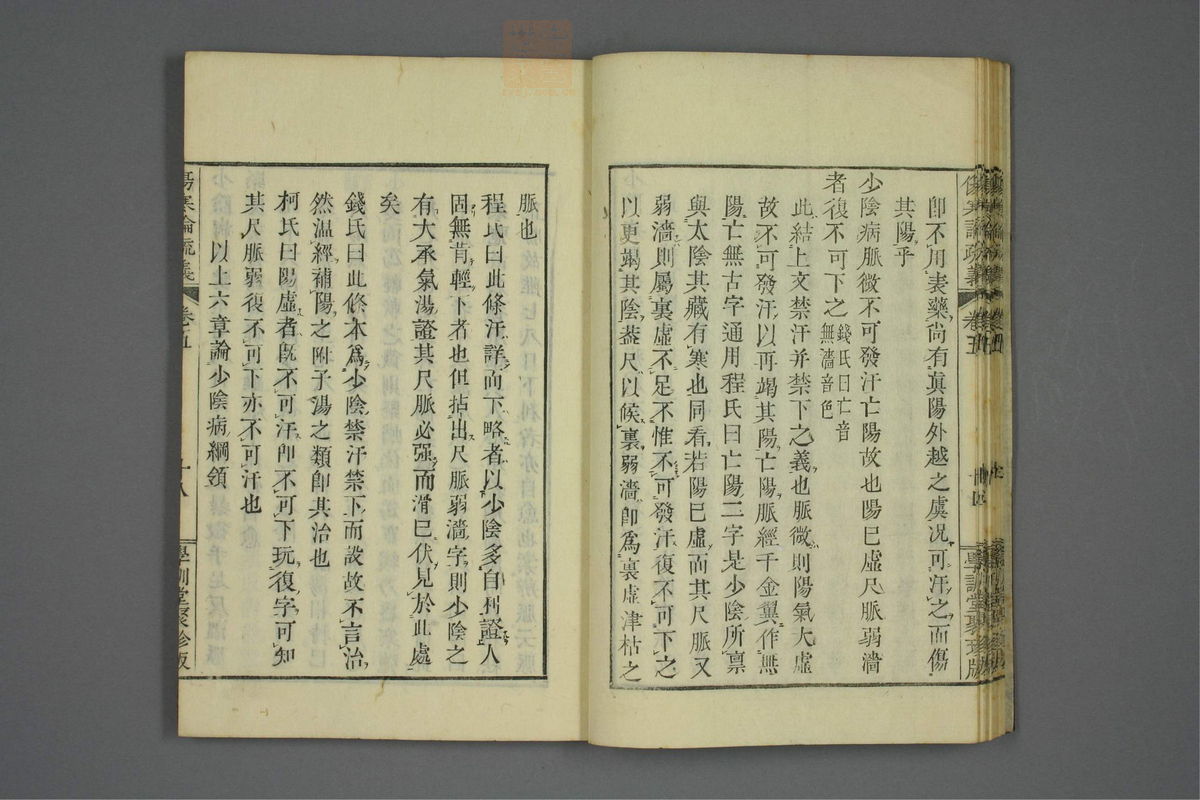 卽不用表藥尚有眞陽外越之虞况可汗之而傷
其陽乎
少陰病脈微不可發汗亡陽故也陽已虛尺脈弱濇
者復不可下之錢氏曰亡音
無濇音色
此結上文禁汗并禁下之義也脈微則陽氣大虛
故不可發汗以再竭其陽亡陽脈經千金翼作無
陽亡無古字通用程氏曰亡陽二字是少陰所禀
與太陰其藏有寒也同看若陽已虛而其尺脈又
弱濇則屬裏虛不足不惟不可發汗復不可下之
以更竭其陰葢尺以候裏弱濇卽爲裏虛津枯之
脈也
程氏曰此條汗詳而下略者以少陰多自利證人
固無肯輕下者也但拈出尺脈弱濇字則少陰之
有大承氣湯證其尺脈必强而滑已伏見於此處
矣
錢氏曰此條本爲少陰禁汗禁下而設故不言治
然温經補陽之附子湯之類卽其治也
柯氏曰陽虛者旣不可汗卽不可下玩復字可知
其尺脈弱復不可下亦不可汗也
以上六章論少陰病綱領
傷寒論疏義 卷五 十八 學訓堂聚珍版